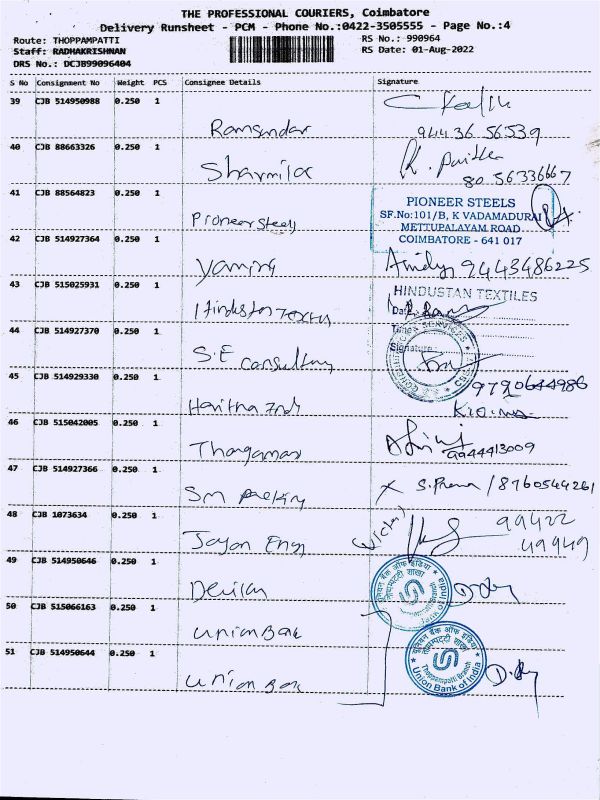 THE PROFESSIONAL COURIERS, Coimbatore
Delivery Runsheet - PCM - Phone No.:0422-3505555 - Page No.:4
Route: THOPPAMPATTI
RS No.: 990964
Staff: RADHAKRISHNAN
RS Date: 01-Aug-2022
DRS No.: DCJB99096404
S No Consignment No Weight PCS Consignee Details Signature
39 CJB 514950988 0.250 1
Ramsundar 94436 56539
40 CJB 88663326 0.250 1
Sharmila 80 56336667
41 CJB 88564823 0.250 1
Pioneer Steels
PIONEER STEELS
SF.No:101/B, K VADAMADURAI
METTUPALAYAM ROAD
COIMBATORE - 641 017
42 CJB 514927364 0.250 1
9443486225
43 CJB 515025931 0.250 1
Hindustan Textiles
HINDUSTAN TEXTILES
Date
Time
Signature
44 CJB 514927370 0.250 1
S.E Consultancy
45 CJB 514929330 0.250 1
Haritha Inds 9790644986
46 CJB 515042005 0.250 1
Thangaman 9944413009
47 CJB 514927366 0.250 1
SM Packing S. Prema / 8760544261
48 CJB 1073634 0.250 1
Jayan Eng 99422
49949
49 CJB 514950646 0.250 1
यूनियन बैंक ऑफ इंडिया
50 CJB 515066163 0.250 1
Union Bank
यूनियन बैंक ऑफ इंडिया
Thoppampatti Branch
Union Bank of India
51 CJB 514950644 0.250 1
Union Bank